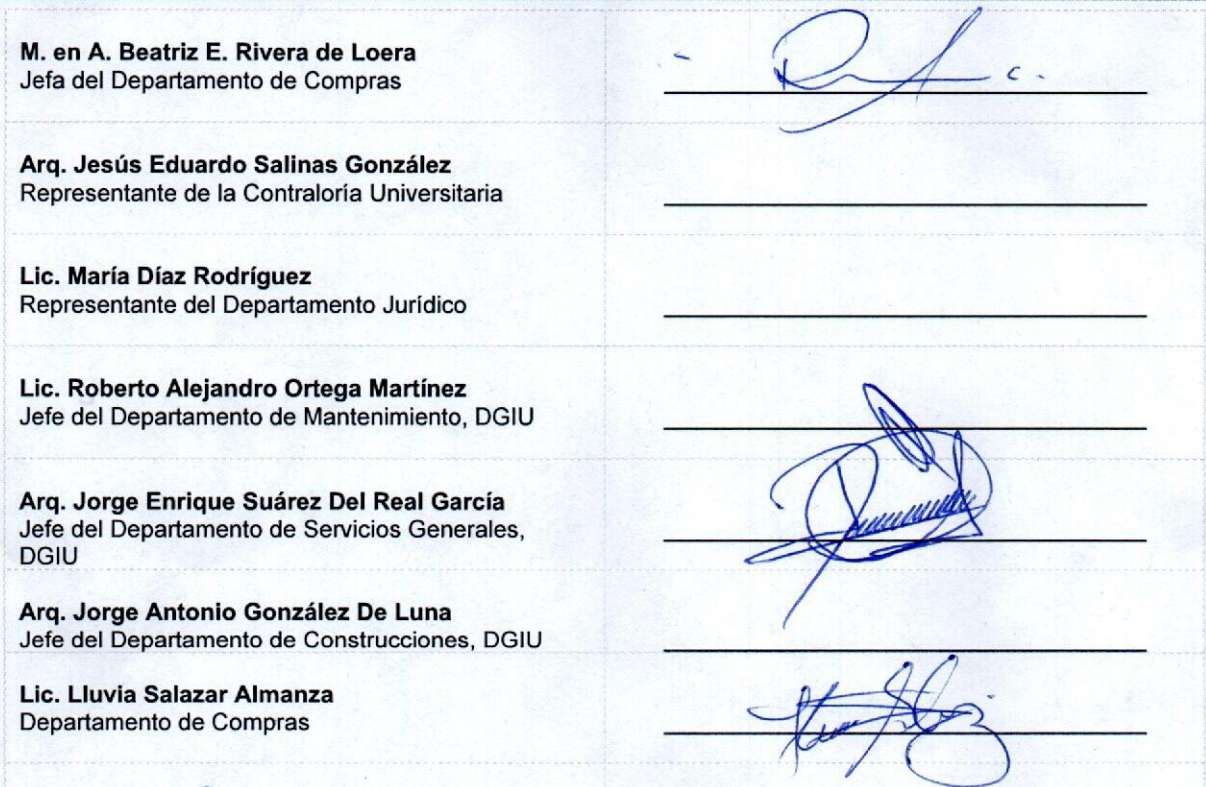 M. en A. Beatriz E. Rivera de Loera
Jefa del Departamento de Compras
Arq. Jesús Eduardo Salinas González
Representante de la Contraloría Universitaria
Lic. María Díaz Rodríguez
Representante del Departamento Jurídico
Lic. Roberto Alejandro Ortega Martínez
Jefe del Departamento de Mantenimiento, DGIU
Arq. Jorge Enrique Suárez Del Real García
Jefe del Departamento de Servicios Generales,
DGIU
Arq. Jorge Antonio González De Luna
Jefe del Departamento de Construcciones, DGIU
Lic. Lluvia Salazar Almanza
Departamento de Compras